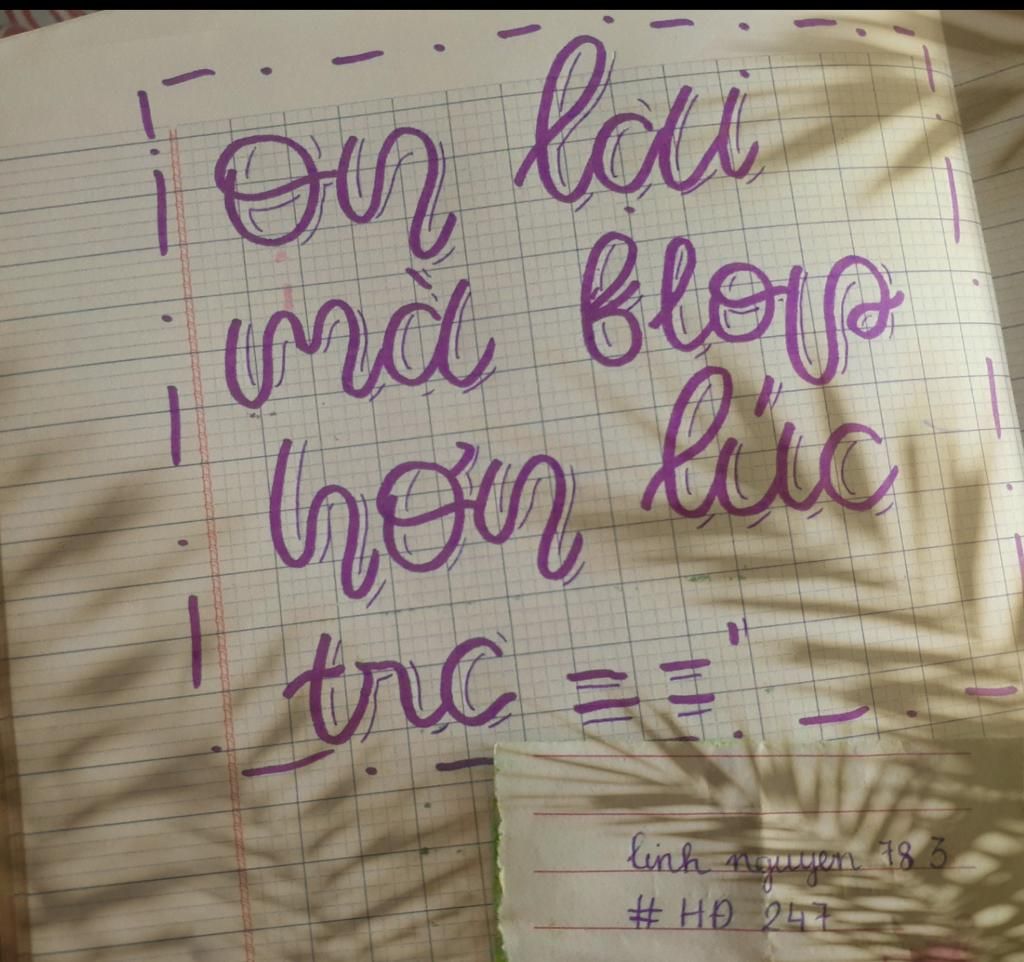 on lại
mà flop
hơn lúc
trc =="
linh nguyen 783
# HĐ 247